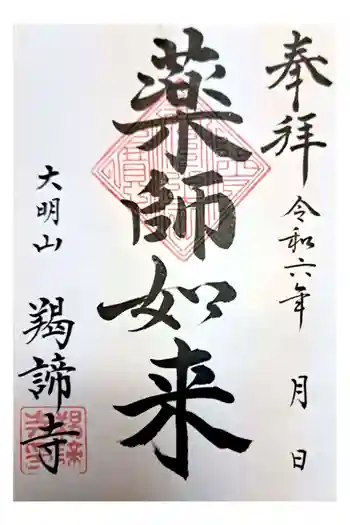 奉拝
令和六年 月 日
薬師如来
大明山
羯諦寺